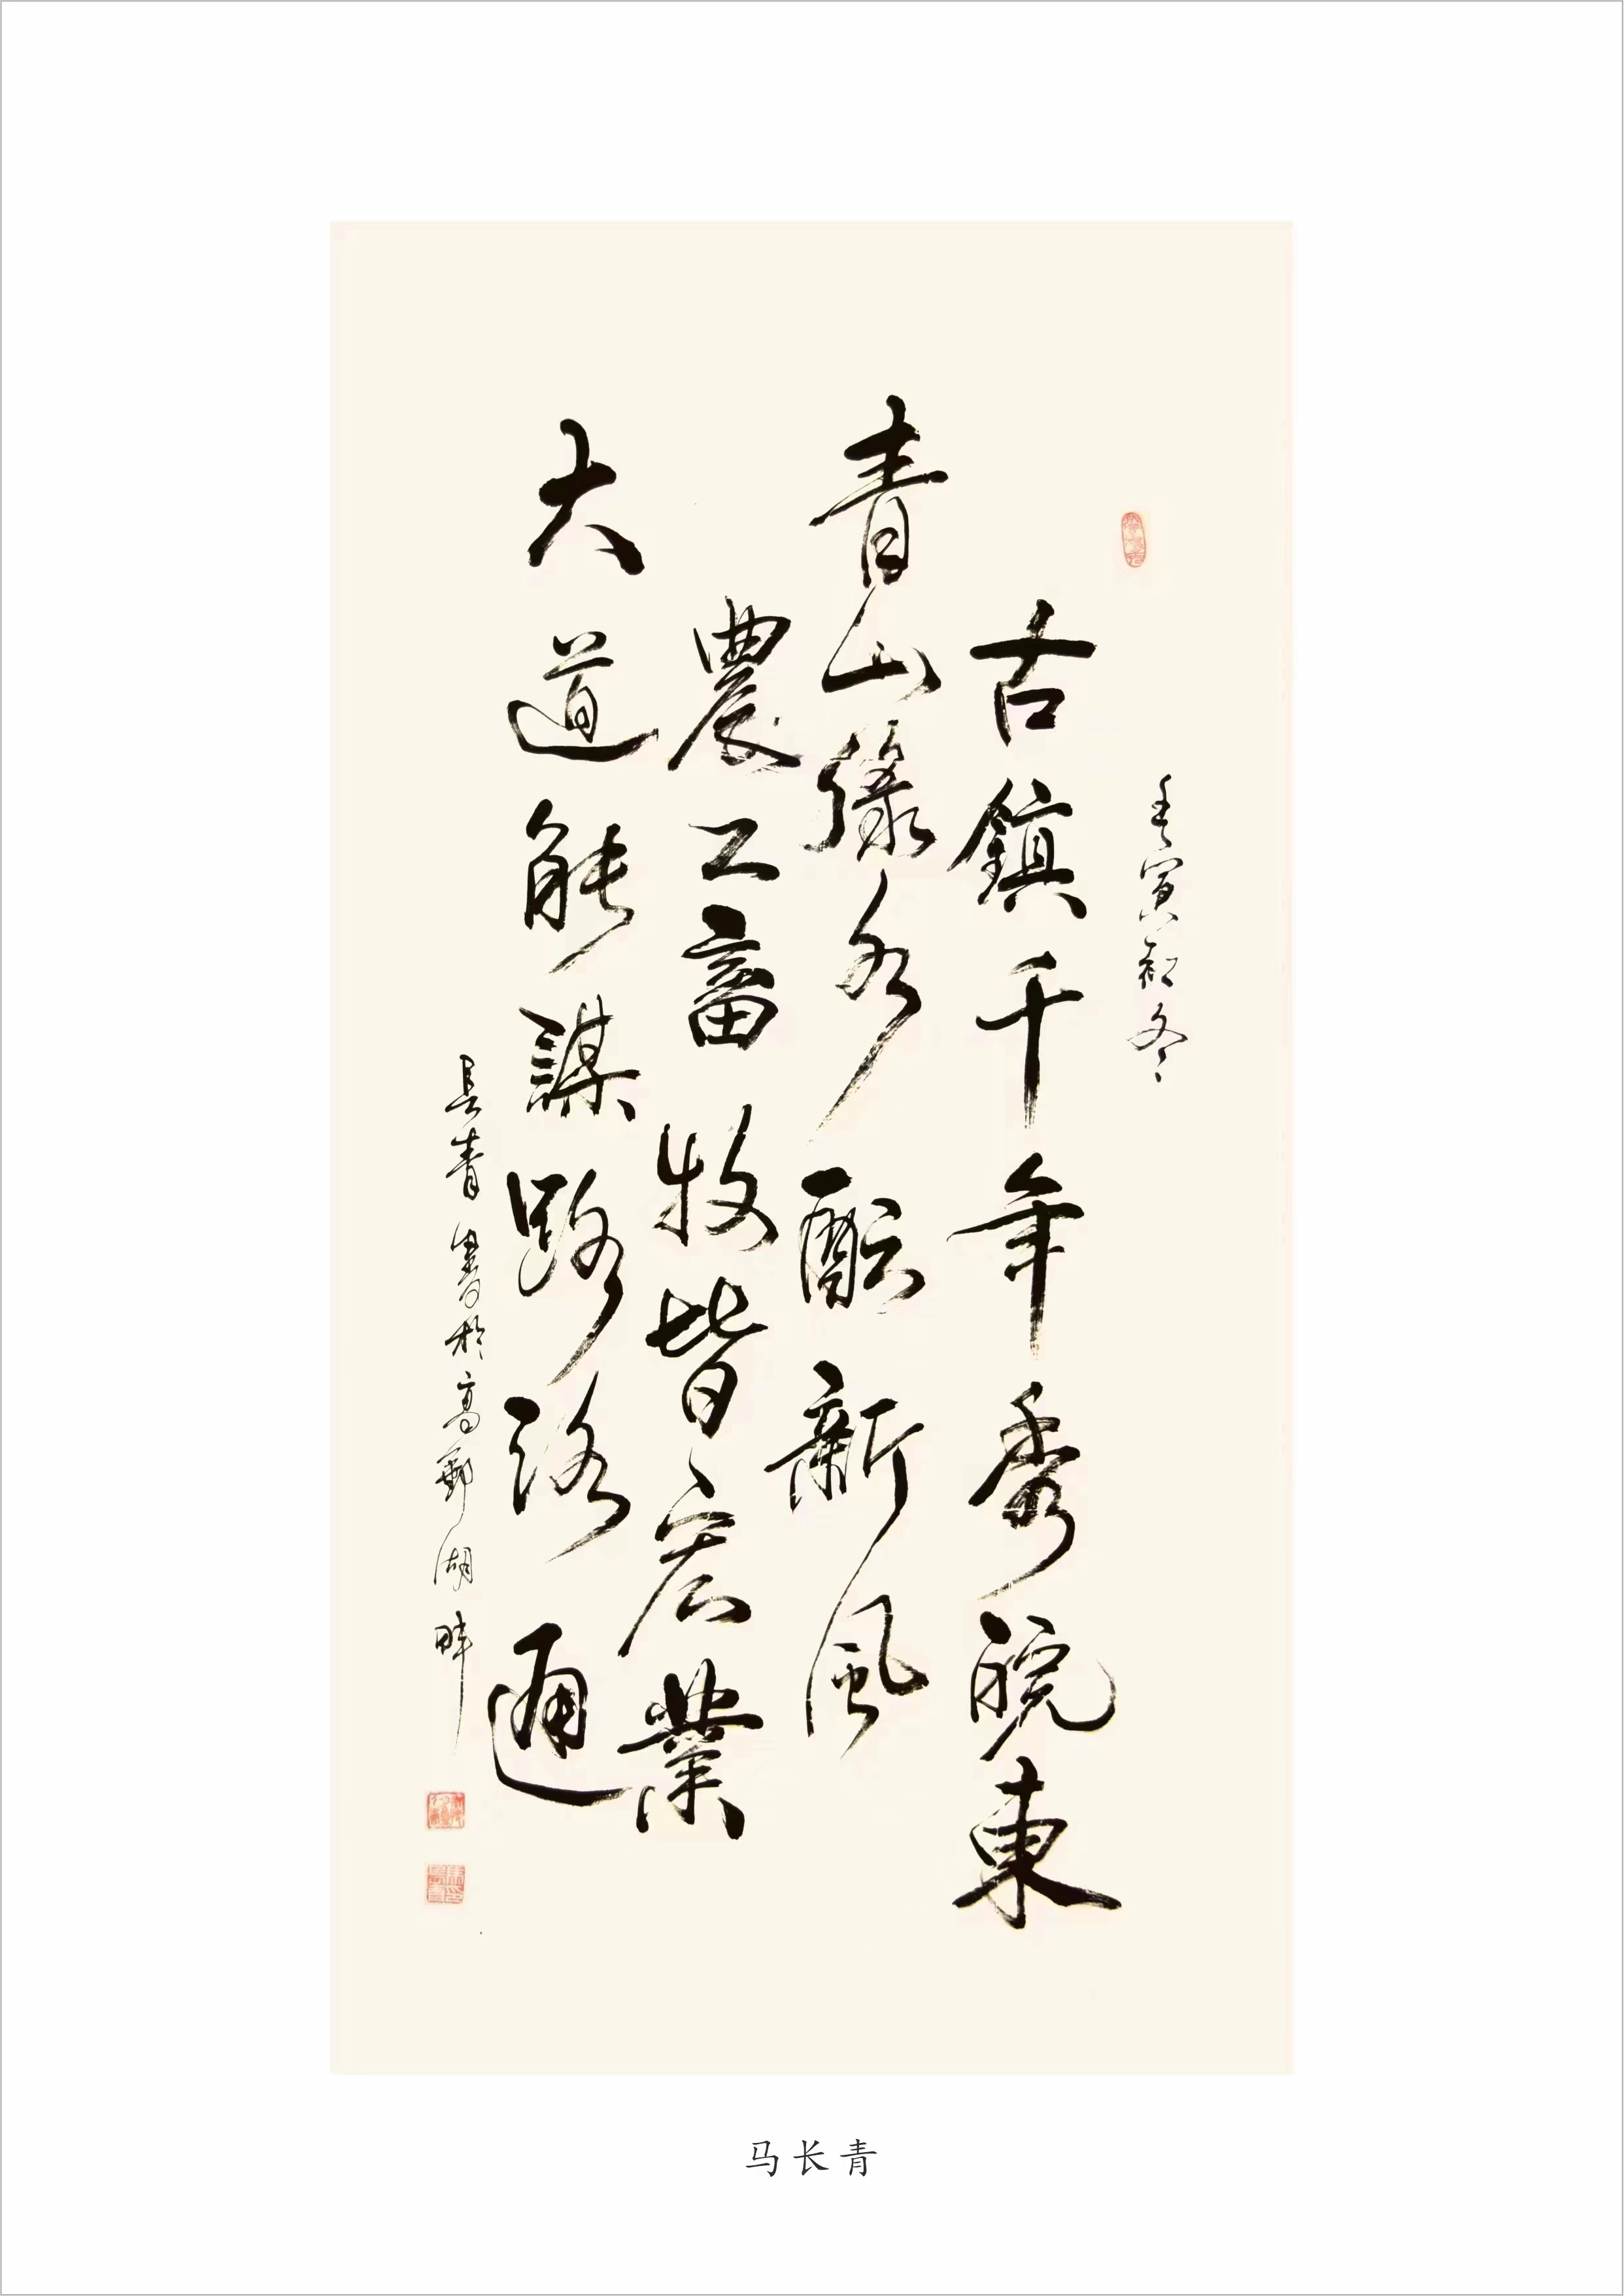 壬寅初冬
古鎮千年秀皖東
青山緑水醖新風
農工畜牧皆宏業
大道能謀路路通
長青書於高郵湖畔
马长青